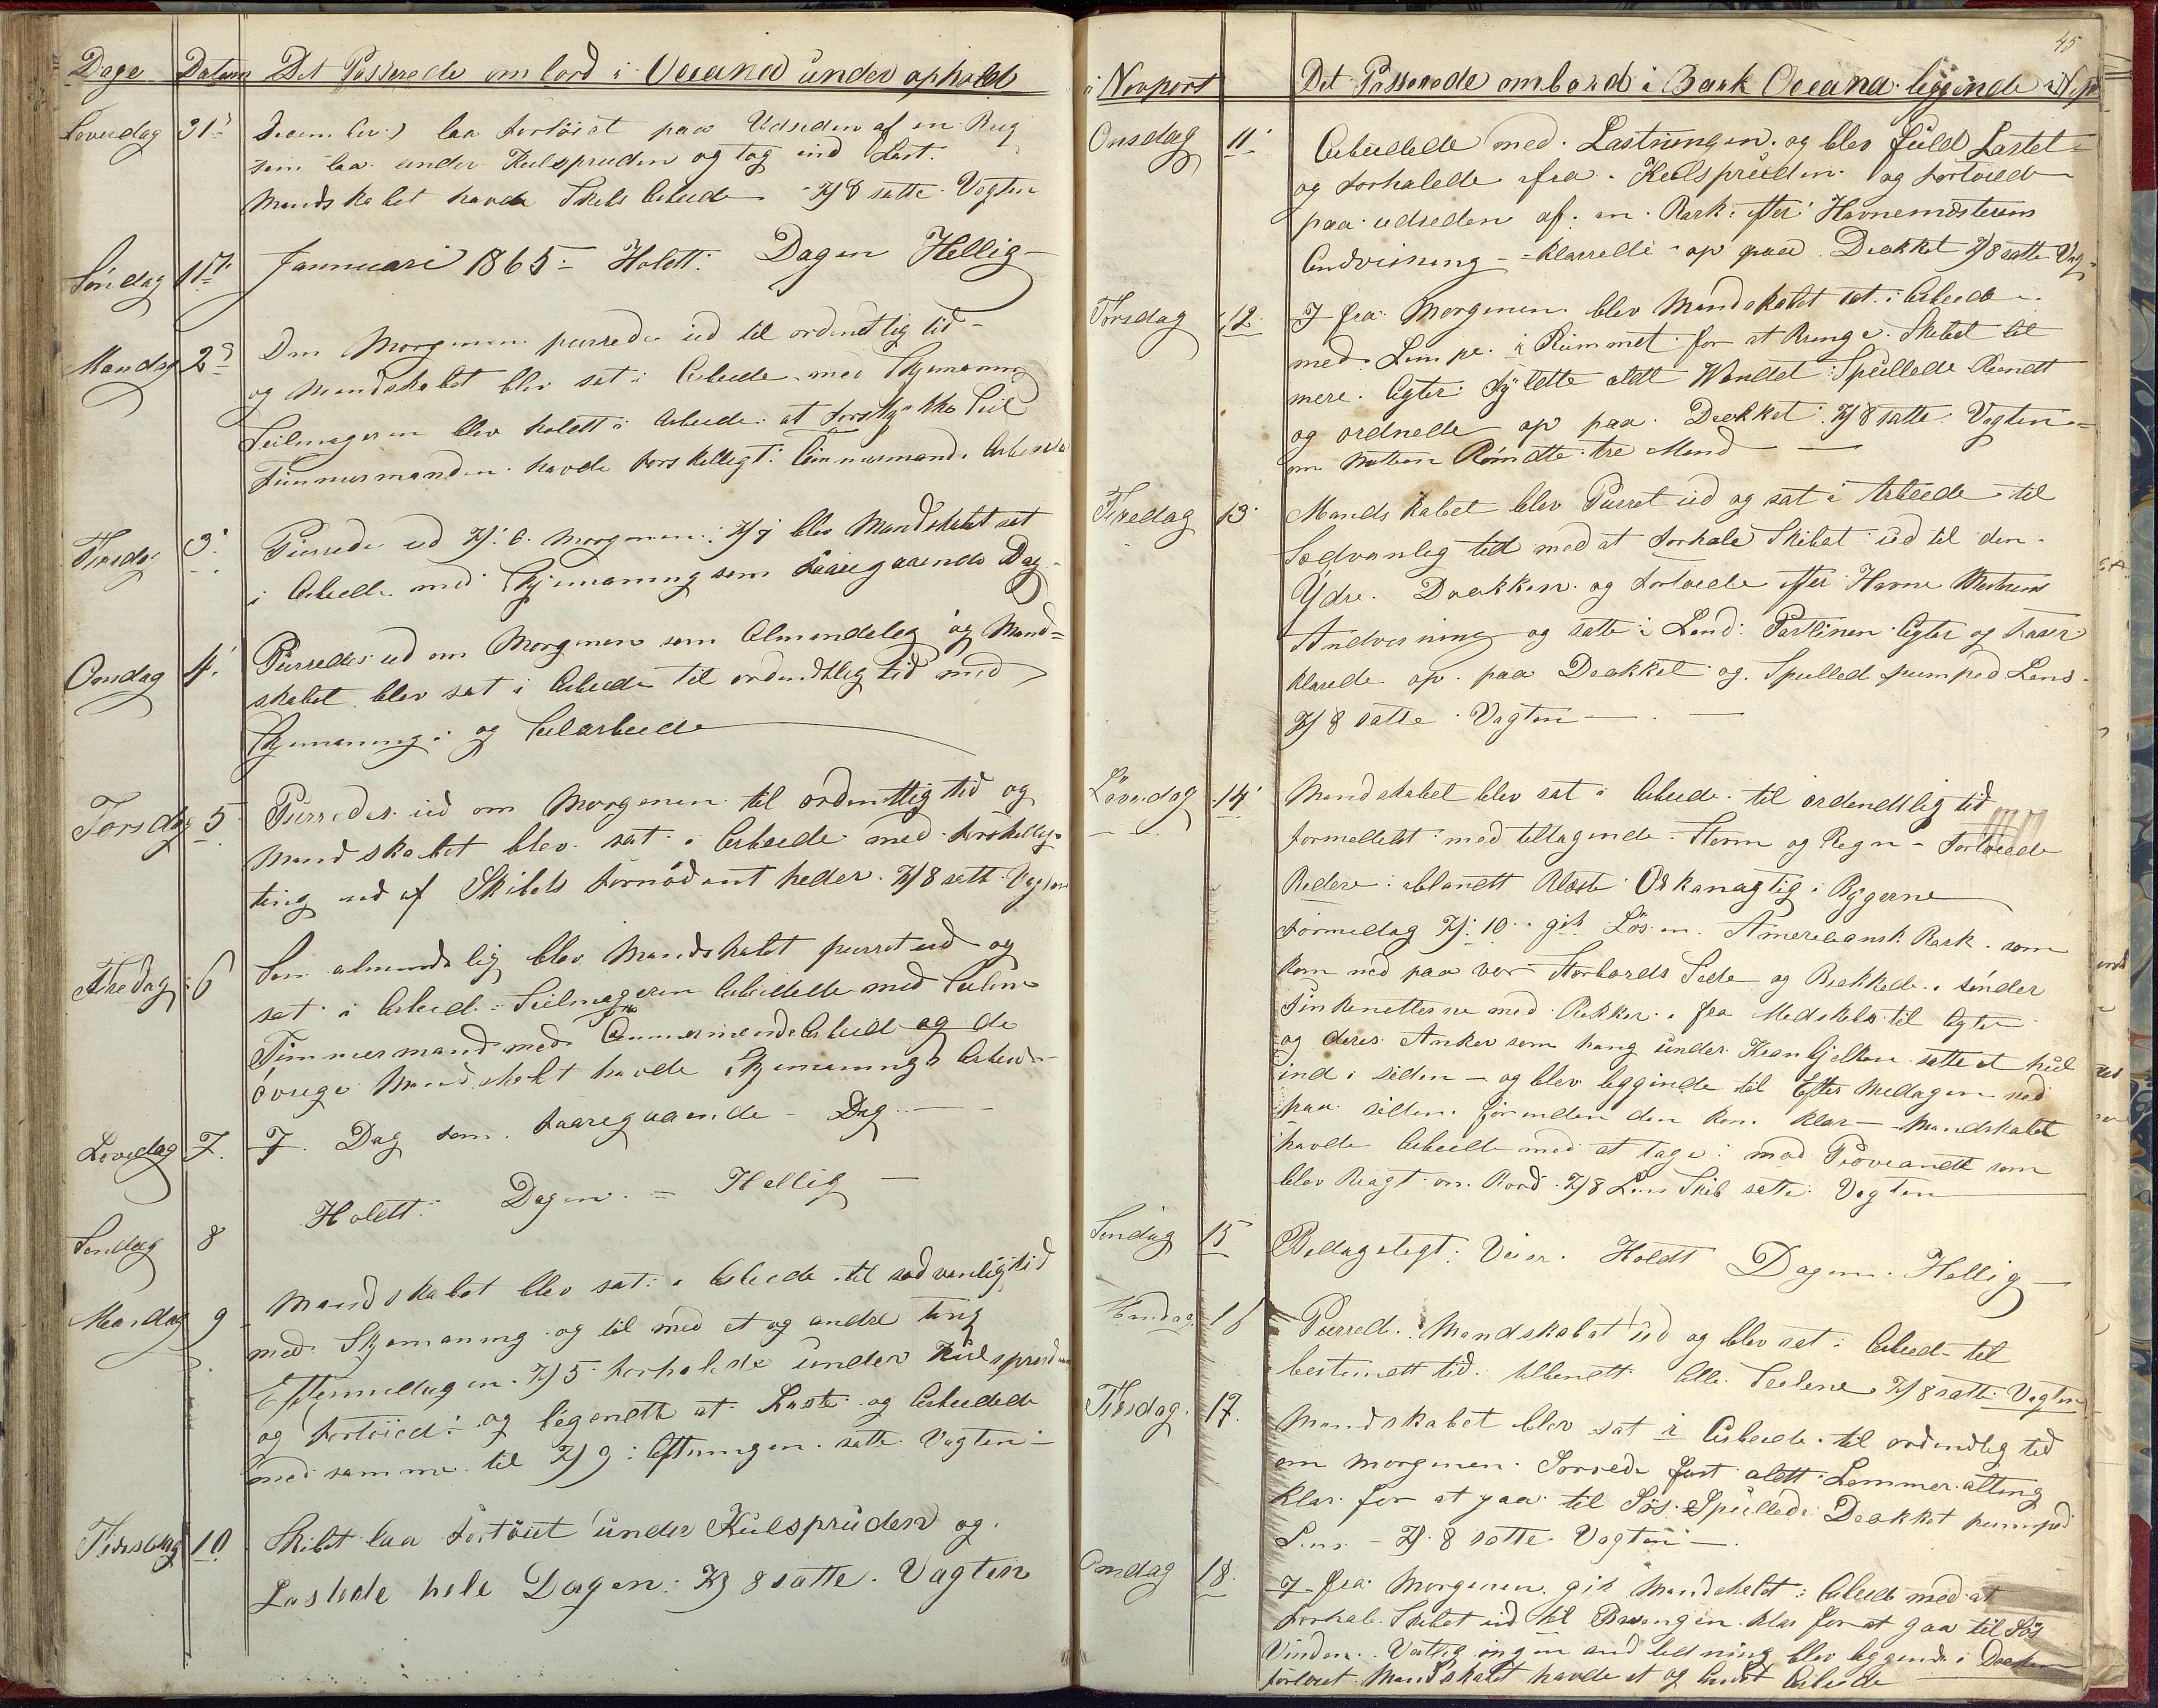 Dage Datum Det Passerede om bord i Oceana under ophold
Løverdag 31 December) laa fortøiet paa Udsiden af en Brig
som laa under Kulspruden og tog ind Last.
Mandskabet havde Skibs Arbeide Kl 8 satte Vagten
Søndag 1 Jannuari 1865 - Holdt Dagen Hellig -
Mandag 2 Om Morgenen purrede ud til ordentlig tid -
og Mandskabet blev sat i Arbeide med Skjemanning
Seilmageren blev holdt i Arbeide at Seil
Timmermanden havde forskelligt Timmermands Arbeide
Tirsdag 3 Purrede ud Kl. 6 Morgenen Kl 7 blev Mandskabet sat
i Arbeide med Skjemanning som Foaregaaende Dag
Onsdag 4. Purredes ud om Morgenen som Almendelig og Mand=
skabet blev sat i Arbeide til ordendtlig tid med
Skjemanning og Seilarbeide
Torsdag 5 Purredes ud om Morgenen til ordentlig tid og
Mandskabet blev sat i Arbeide med forskellig
ting ud af Skibets fornødentheder. Kl 8 satt Vagten
Fredag 6 Som almindelig blev Mandskabet purret ud og
sat i Arbeid. Seilmageren Arbeidede med Seilene
Timmermand med Timmermands Arbeid og de
øvrige Mandskabt havde Skjemannings Arbeide
Løvedag 7. I Dag som foaregaaende Dag -
Søndag 8 Holdt Dagen = Hellig -
Mandag 9 Mandskabet blev sat i Arbeide til sædvanlig tid
med Skjemanning og til med et og andre ting
Eftermidagen. Kl 5 forhalede under Kulspruden
og fortøied: og begendte at Laste og Arbeidede
med samme til Kl 9: Aftningen satte Vagten -
Tirsdag 10 Skibet laa fortøiet under Kulspruden og
Lastede hele Dagen Kl 8 satte Vagten
45
i Newport Det Passerede ombord i Bark Oceana liggende i
Onsdag 11 Arbeidede med Lastningen og blev fuld Lastet -
og forhalede fra Kulspruden og fortøiede
paa udseden af en Bark efter Havnemesterens
Andvisning - klarede op paa Dækket Kl 8 satte Vag
Torsdag 12. I fra Morgenen blev Mandskabet sat i Arbeide
med Lempe i Rummet for at bringe Skibet til
mere Agter fyldte aldt Wandet Spullede Rundt
og ordnede op paa Dækket Kl 8 satte Vagten =
om Natten Rømdte tre Mand
Fredag 13 Mandskabet blev Purret ud og sat i Arbeide til
Sædvanlig tid med at forhale Skibet ud til den
Ydre Dokken og fortøiede efter Havne Mesterens
Andvisning og satte i Land Partliner Agter og
klarede op paa Dækket og Spulled pumped Lens -
Kl 8 satte Vagten
Løverdag 14 Mandskabet blev sat i Arbeide til ordendtlig tid
formeddelst med tiltagende Storm og Regn - fortøiede
Bedere iblandt blæste Orkanagtig i Bygerne
Formedag Kl. 10 gik Løs en Amerikansk Bark som
kom ned paa vor Storbords Side og Brekkede i sønder
Finkenetterne med Rekker fra Midskebs til Agter
og deres Anker som hang under Kranbjelken satte et hul
ind i siden - og blev leggende til Efter Medagen ved
paa siden førinden den kom klar - Mandskabet
havde Arbeide med at tage mod Proveandt som
blev Bragt om Bord Kl 8 Lens Skib satte Vagten
Søndag 15 Bedageligt Veier. Holdt Dagen Hellig -
Mandag 16 Purred. Mandskabat ud og blev sat i Arbeid til
bestemdt tid. Alle Seilene Kl 8 satte Vagten
Tirsdag 17. Mandskabet blev sat i Arbeide til ordendlig tid
om Morgenen Sorrede fast aldt Lemmer alting
klar for at gaa til Søs Spullede Dækket pumped
Lens - Kl. 8 satte Vagten -
Onsdag 18. I fra Morgenen gik Mandskabet i Arbeide med at
forhale Skibet ud til klar for at gaa til Søs
Vinden Vestlig ingen blev leggende i Dokken
fortøiet Mandskabet havde et og andet Arbeide